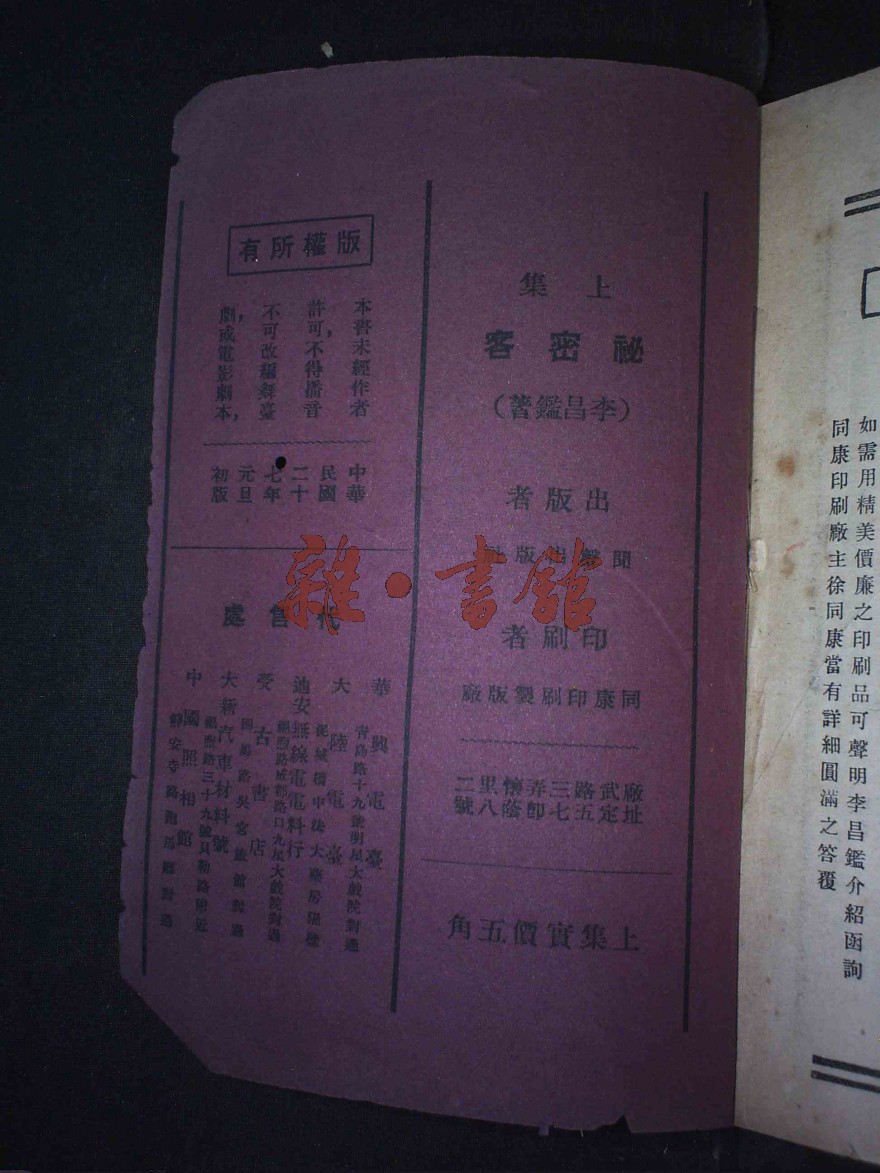 如需用精美價廉之印刷品可聲明李昌鑑介紹函詢
同康印刷廠主徐同康當有詳細圓滿之答覆
上集
祕密客
(李昌鑑著)
出版者
印刷者
同康印刷製版廠
廠址武定路五三七弄即懷蔭里八二號
上集實價五角
版權所有
本書未經作者
許可,不得播音
不可改編舞臺
劇,或電影劇本,
中華民國二十七年元旦初版
代售處
華興電臺
青島路十九號明星大戲院對過
大陸電臺
泥城橋中法大藥房隔壁
迪安無線電電料行
福煦路成都路口九星大戲院對過
受古書店
四馬路吳宮旅館對過
大新汽車材料號
福煦路三十九號貝勒路附近
中國照相館
靜安寺路跑馬廳對過
雜·書館